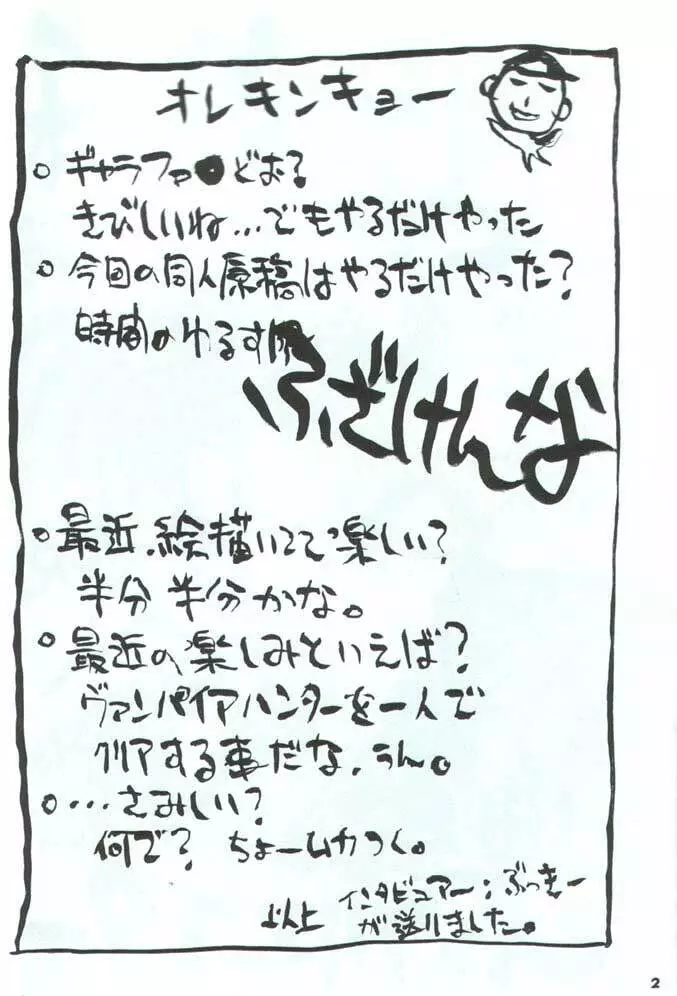 オレキンキョー
○ ギャラファ●どお？
きびしいね…でもやるだけやった
○ 今回の同人原稿はやるだけやった？
時間のゆるす限
ふざけんな
○ 最近、絵描いてて楽しい？
半分半分かな。
○ 最近の楽しみといえば？
ヴァンパイアハンターを一人で
クリアする事だな、うん。
○ …さみしい？
何で？ ちょームカつく。
インタビュアー：ぶっきー
以上 が送りました。
2